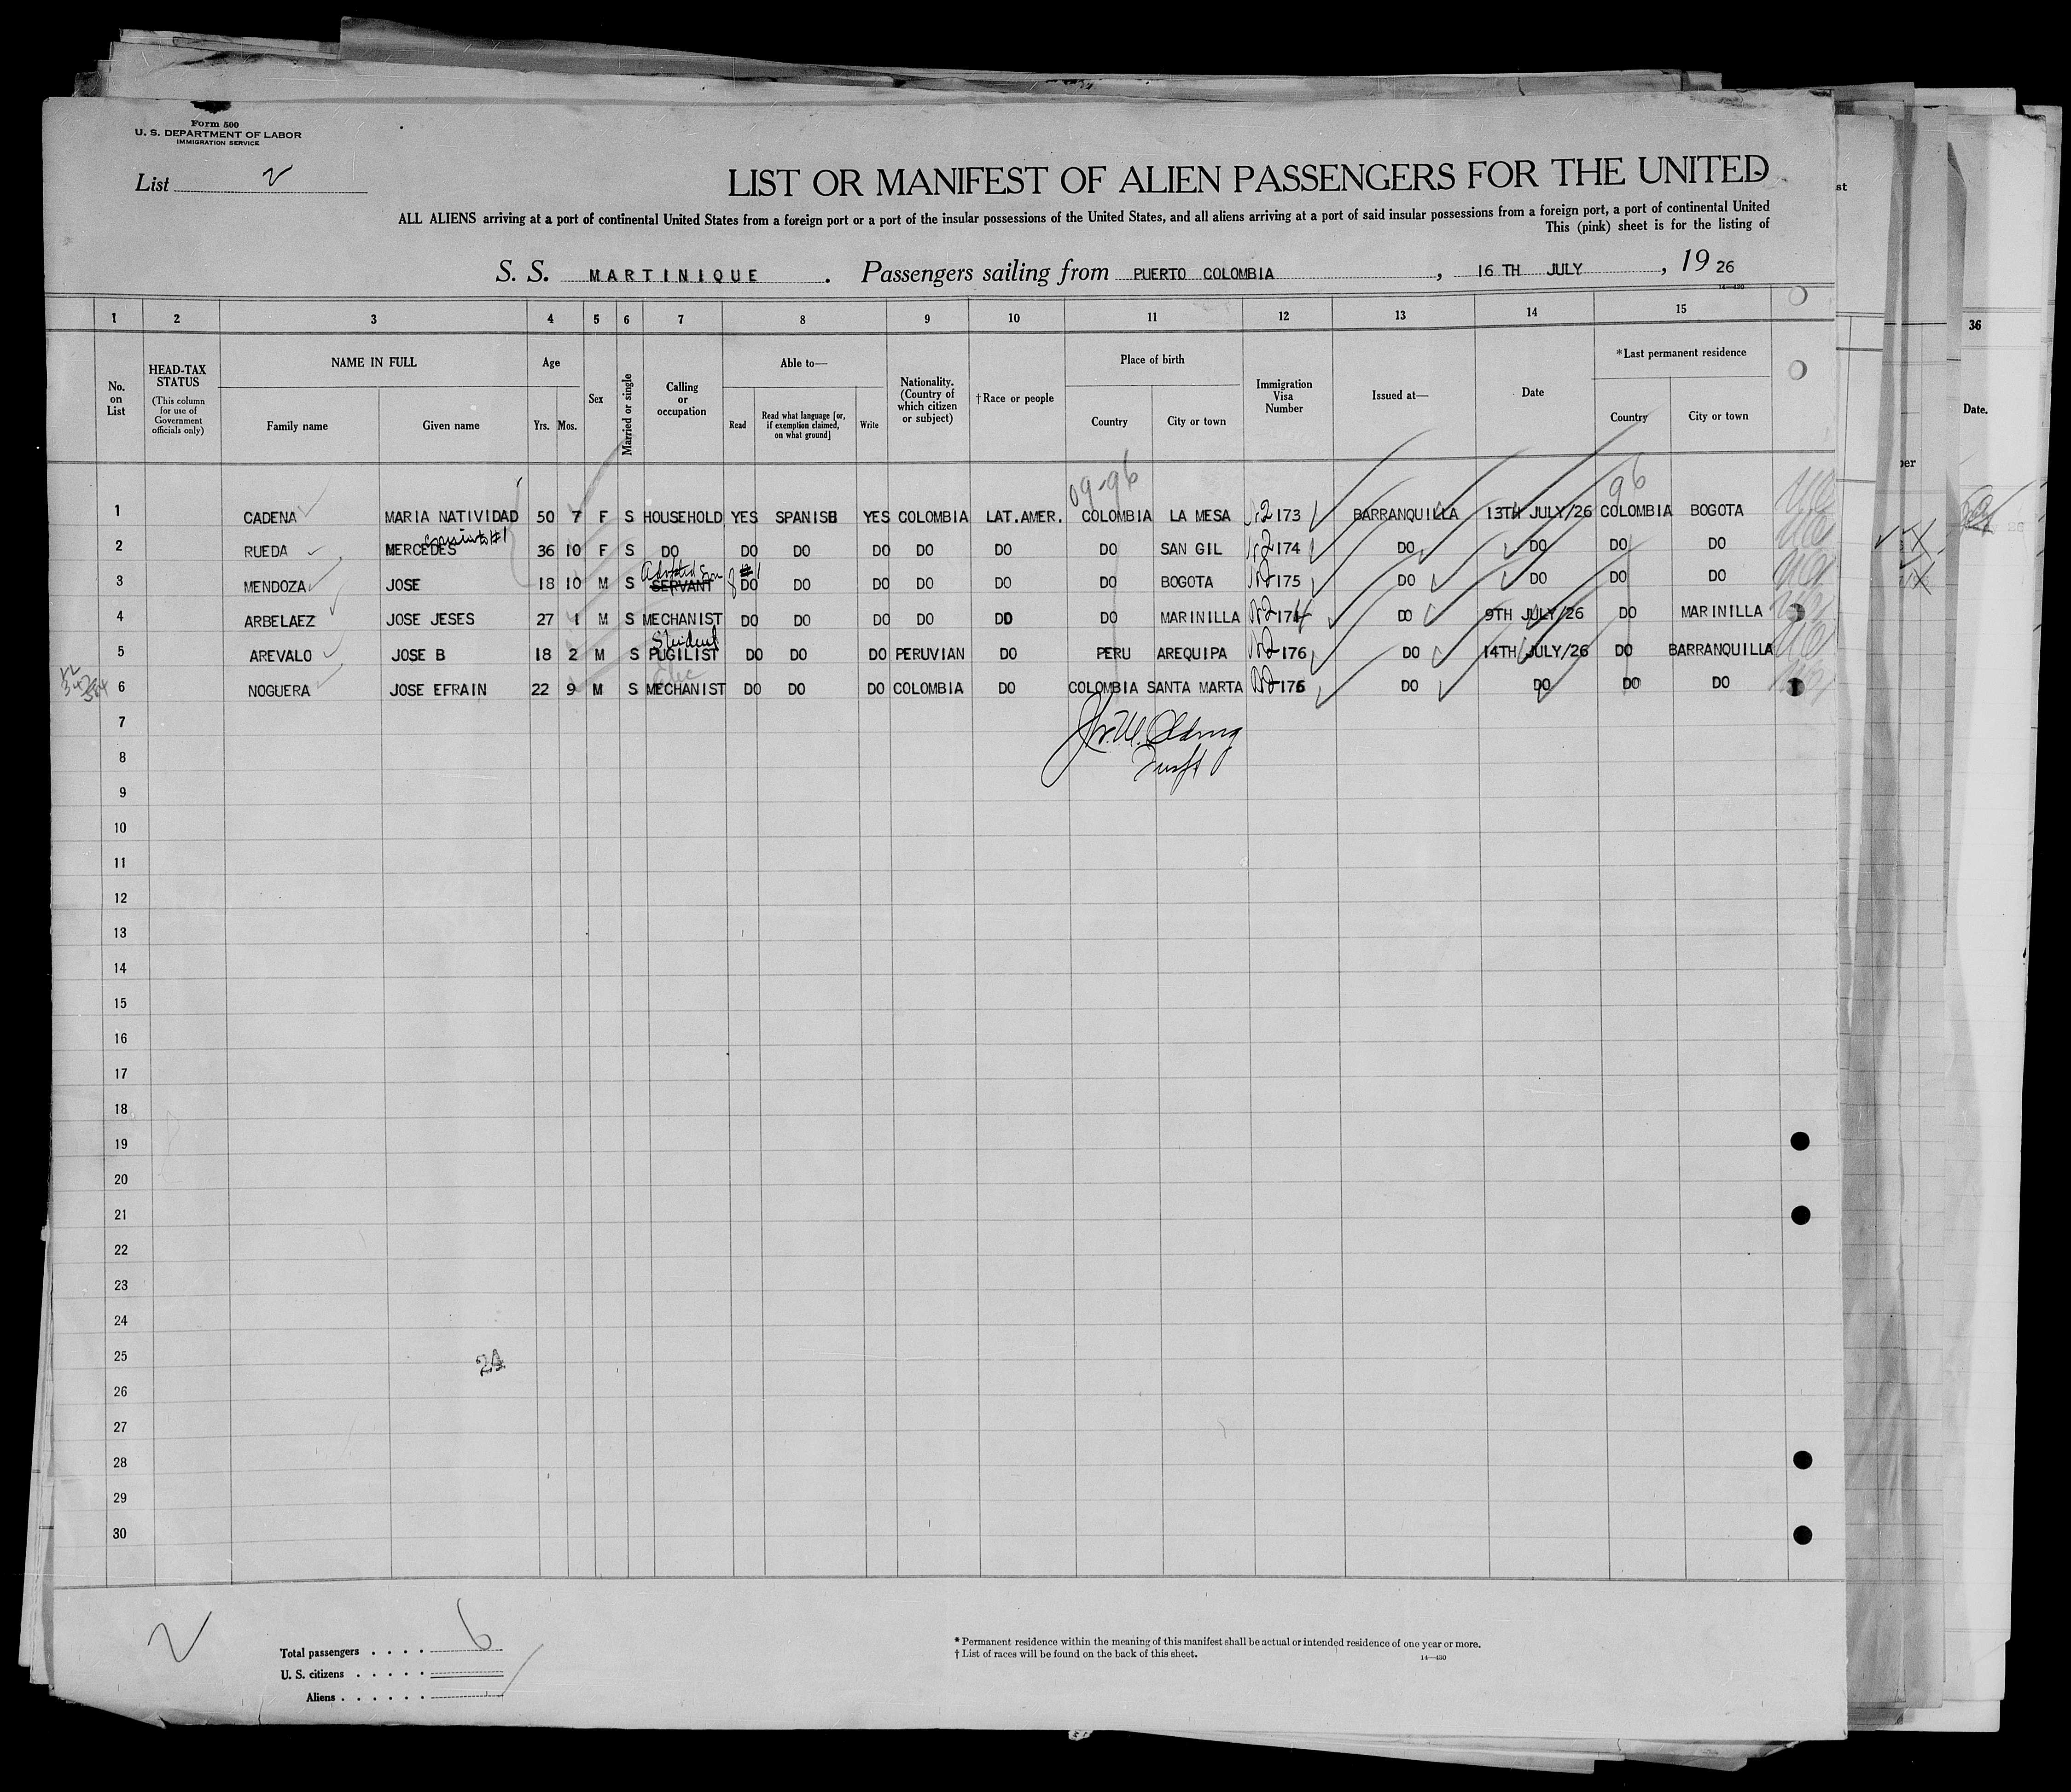 Form 500
U. S. DEPARTMENT OF LABOR
IMMIGRATION SERVICE
List 2
LIST OR MANIFEST OF ALIEN PASSENGERS FOR THE UNITED
ALL ALIENS arriving at a port of continental United States from a foreign port or a port of the insular possessions of the United States, and all aliens arriving at a port of said insular possessions from a foreign port, a port of continental United
This (pink) sheet is for the listing of
S. S. MARTINIQUE. Passengers sailing from PUERTO COLOMBIA, 16 TH JULY, 19 26
14—430
1 2 3 4 5 6 7 8 9 10 11 12 13 14 15
No. on List
HEAD-TAX STATUS (This column for use of Government officials only)
NAME IN FULL Family name Given name
Age Yrs. Mos.
Sex
Married or single
Calling or occupation
Able to— Read Read what language [or, if exemption claimed, on what ground] Write
Nationality. (Country of which citizen or subject)
†Race or people
Place of birth Country City or town
Immigration Visa Number
Issued at—
Date
*Last permanent residence Country City or town
09-96 96
1 CADENA MARIA NATIVIDAD 50 7 F S HOUSEHOLD YES SPANISH YES COLOMBIA LAT.AMER. COLOMBIA LA MESA 173 BARRANQUILLA 13TH JULY/26 COLOMBIA BOGOTA
2 RUEDA MERCEDES 36 10 F S DO DO DO DO DO DO DO SAN GIL 174 DO DO DO DO
Adopted Son of #1
3 MENDOZA JOSE 18 10 M S SERVANT DO DO DO DO DO DO BOGOTA 175 DO DO DO DO
4 ARBELAEZ JOSE JESES 27 1 M S MECHANIST DO DO DO DO DO DO MARINILLA 171 DO 9TH JULY/26 DO MARINILLA
Student
5 AREVALO JOSE B 18 2 M S PUGILIST DO DO DO PERUVIAN DO PERU AREQUIPA 176 DO 14TH JULY/26 DO BARRANQUILLA
6 NOGUERA JOSE EFRAIN 22 9 M S MECHANIST DO DO DO COLOMBIA DO COLOMBIA SANTA MARTA 176 DO DO DO DO
7
8
9
10
11
12
13
14
15
16
17
18
19
20
21
22
23
24
25 24
26
27
28
29
30
2
Total passengers . . . . 6
U. S. citizens . . . . .
Aliens . . . . . .
* Permanent residence within the meaning of this manifest shall be actual or intended residence of one year or more.
† List of races will be found on the back of this sheet.
14—430
36
Date.